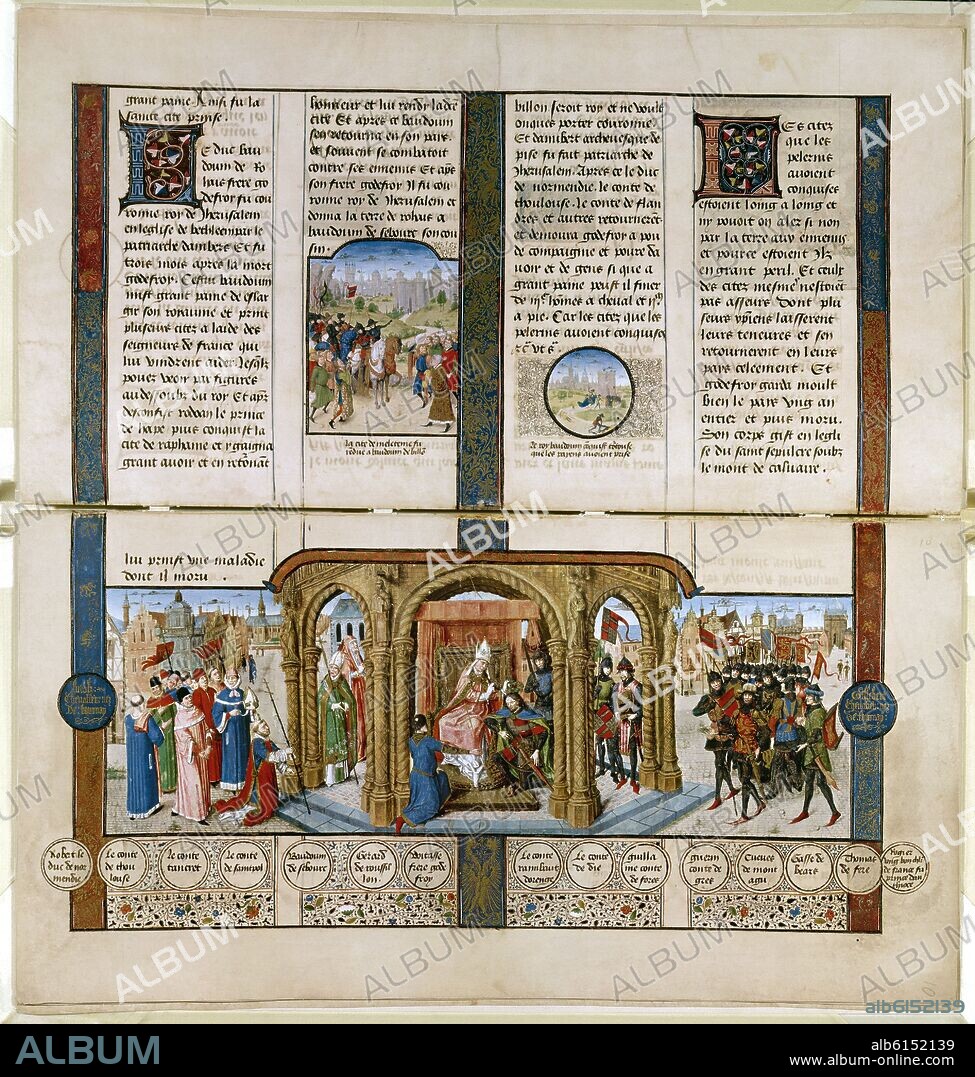 grant paine. Ainsi fu la
sainte cite prinse.
E duc bau
doum de Ro
hais frere go
defroy fu cou
ronne roy de Jherusalem
en leglise de bethleem par le
patriarche dambert Et fu
trois mois apres la mort
godefroy. Cestui baudoum
mist grant paine de eslar
gir son royaume et print
pluseurs citez a laide des
seigneurs de france qui
lui vindrent aider
pouez veoir par figures
au dessoubz du roy Et apres
desconfist rodoan le prince
de hape puis conquist la
cite de raphanie et y gaigna
grant avoir et en retonant
honneur et lui rendy ladte
cite Et apres ce baudoum
sen retourna en son pais
et souvent se combatoit
contre ses ennemis Et apes
son frere godefroy il fu cou
ronne roy de Jherusalem et
donna la terre de rohais a
baudoum de sebourc son cou
sin.
la cite de meleteme fu
rendue a baudoum de billon
billon seroit roy et ne voult
onques porter couronne.
Et dambert archevesque de
pise fu fait patriarche de
Jherusalem. Apres ce le duc
de normendie. le conte de
thoulouse. Le conte de flan
dres et autres retournerent
et demoura godefroy a pou
de compaignie et poure da
voir et de gens si que a
grant paine peust il finer
de iijc homes a cheval et ijm
a pie. Car les citez que les
pelerins avoient conquises
le roy baudoum
que les payens avoient prise
Es citez
que les
pelerins
avoient
conquises
estoient loing a loing et
ny pouoit on aler si non
par la terre aux ennemis
et pource estoient Ilz
en grant peril. Et ceulx
des citez mesme nestoient
pas asseurs Dont plu
seurs xpiens laisserent
leurs tenures et sen
retournerent en leurs
pays celeement. Et
godefroy garda moult
bien le pays ung an
entier et puis moru.
Son corps gist en legli
se du saint sepulcre soubz
le mont de calvaire.
lui prinst une maladie
dont il moru.
Robert le
duc de nor
mendie
Le conte
de thou
louse
Le conte
tancret
Le conte
de sainpol
Baudoum
de sebourc
Gerard
de roussil
lon
Witasse
frere gode
froy
Le conte
raimbaut
dorenge
Le conte
de Die
guilla
me conte
de forez
guerin
conte de
gres
Eueues
de mont
agu
Gasse de
bears
Thomas
de fere
Rogier
ALBUM
alb6152139
ALBUM
alb6152139
www.album-online.com